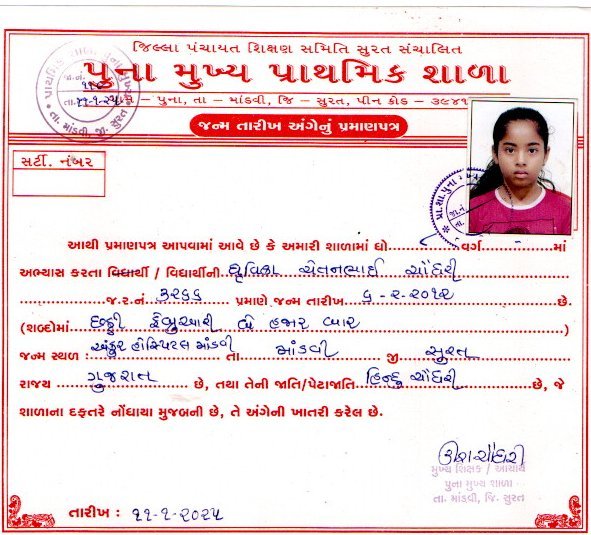 જિલ્લા પંચાયત શિક્ષણ સમિતિ સુરત સંચાલિત
પુના મુખ્ય પ્રાથમિક શાળા
પુના, તા – માંડવી, જિ – સુરત, પીન કોડ – ૩૯૪૧
જન્મ તારીખ અંગેનું પ્રમાણપત્ર
સર્ટી. નંબર
જા.નં.
તા. ૧૧-૧-૨૦૨૫
તા. માંડવી, જી. સુરત
આથી પ્રમાણપત્ર આપવામાં આવે છે કે અમારી શાળામાં ધો. વર્ગ માં
અભ્યાસ કરતા વિદ્યાર્થી / વિદ્યાર્થીની ધ્રુવિકા ચેતનભાઈ ચૌધરી
જ.ર.નં. ૩૨૬૬ પ્રમાણે જન્મ તારીખ ૬-૨-૨૦૧૨ છે.
(શબ્દોમાં છઠ્ઠી ફેબ્રુઆરી બે હજાર બાર)
જન્મ સ્થળ : અંકુર હોસ્પિટલ માંડવી તા માંડવી જી સુરત
રાજય ગુજરાત છે, તથા તેની જાતિ/પેટાજાતિ હિન્દુ ચૌધરી છે, જે
શાળાના દફતરે નોંધાયા મુજબની છે, તે અંગેની ખાતરી કરેલ છે.
મુખ્ય શિક્ષક / આચાર્ય
પુના મુખ્ય શાળા
તા. માંડવી, જિ. સુરત
તારીખ : ૧૧-૧-૨૦૨૫